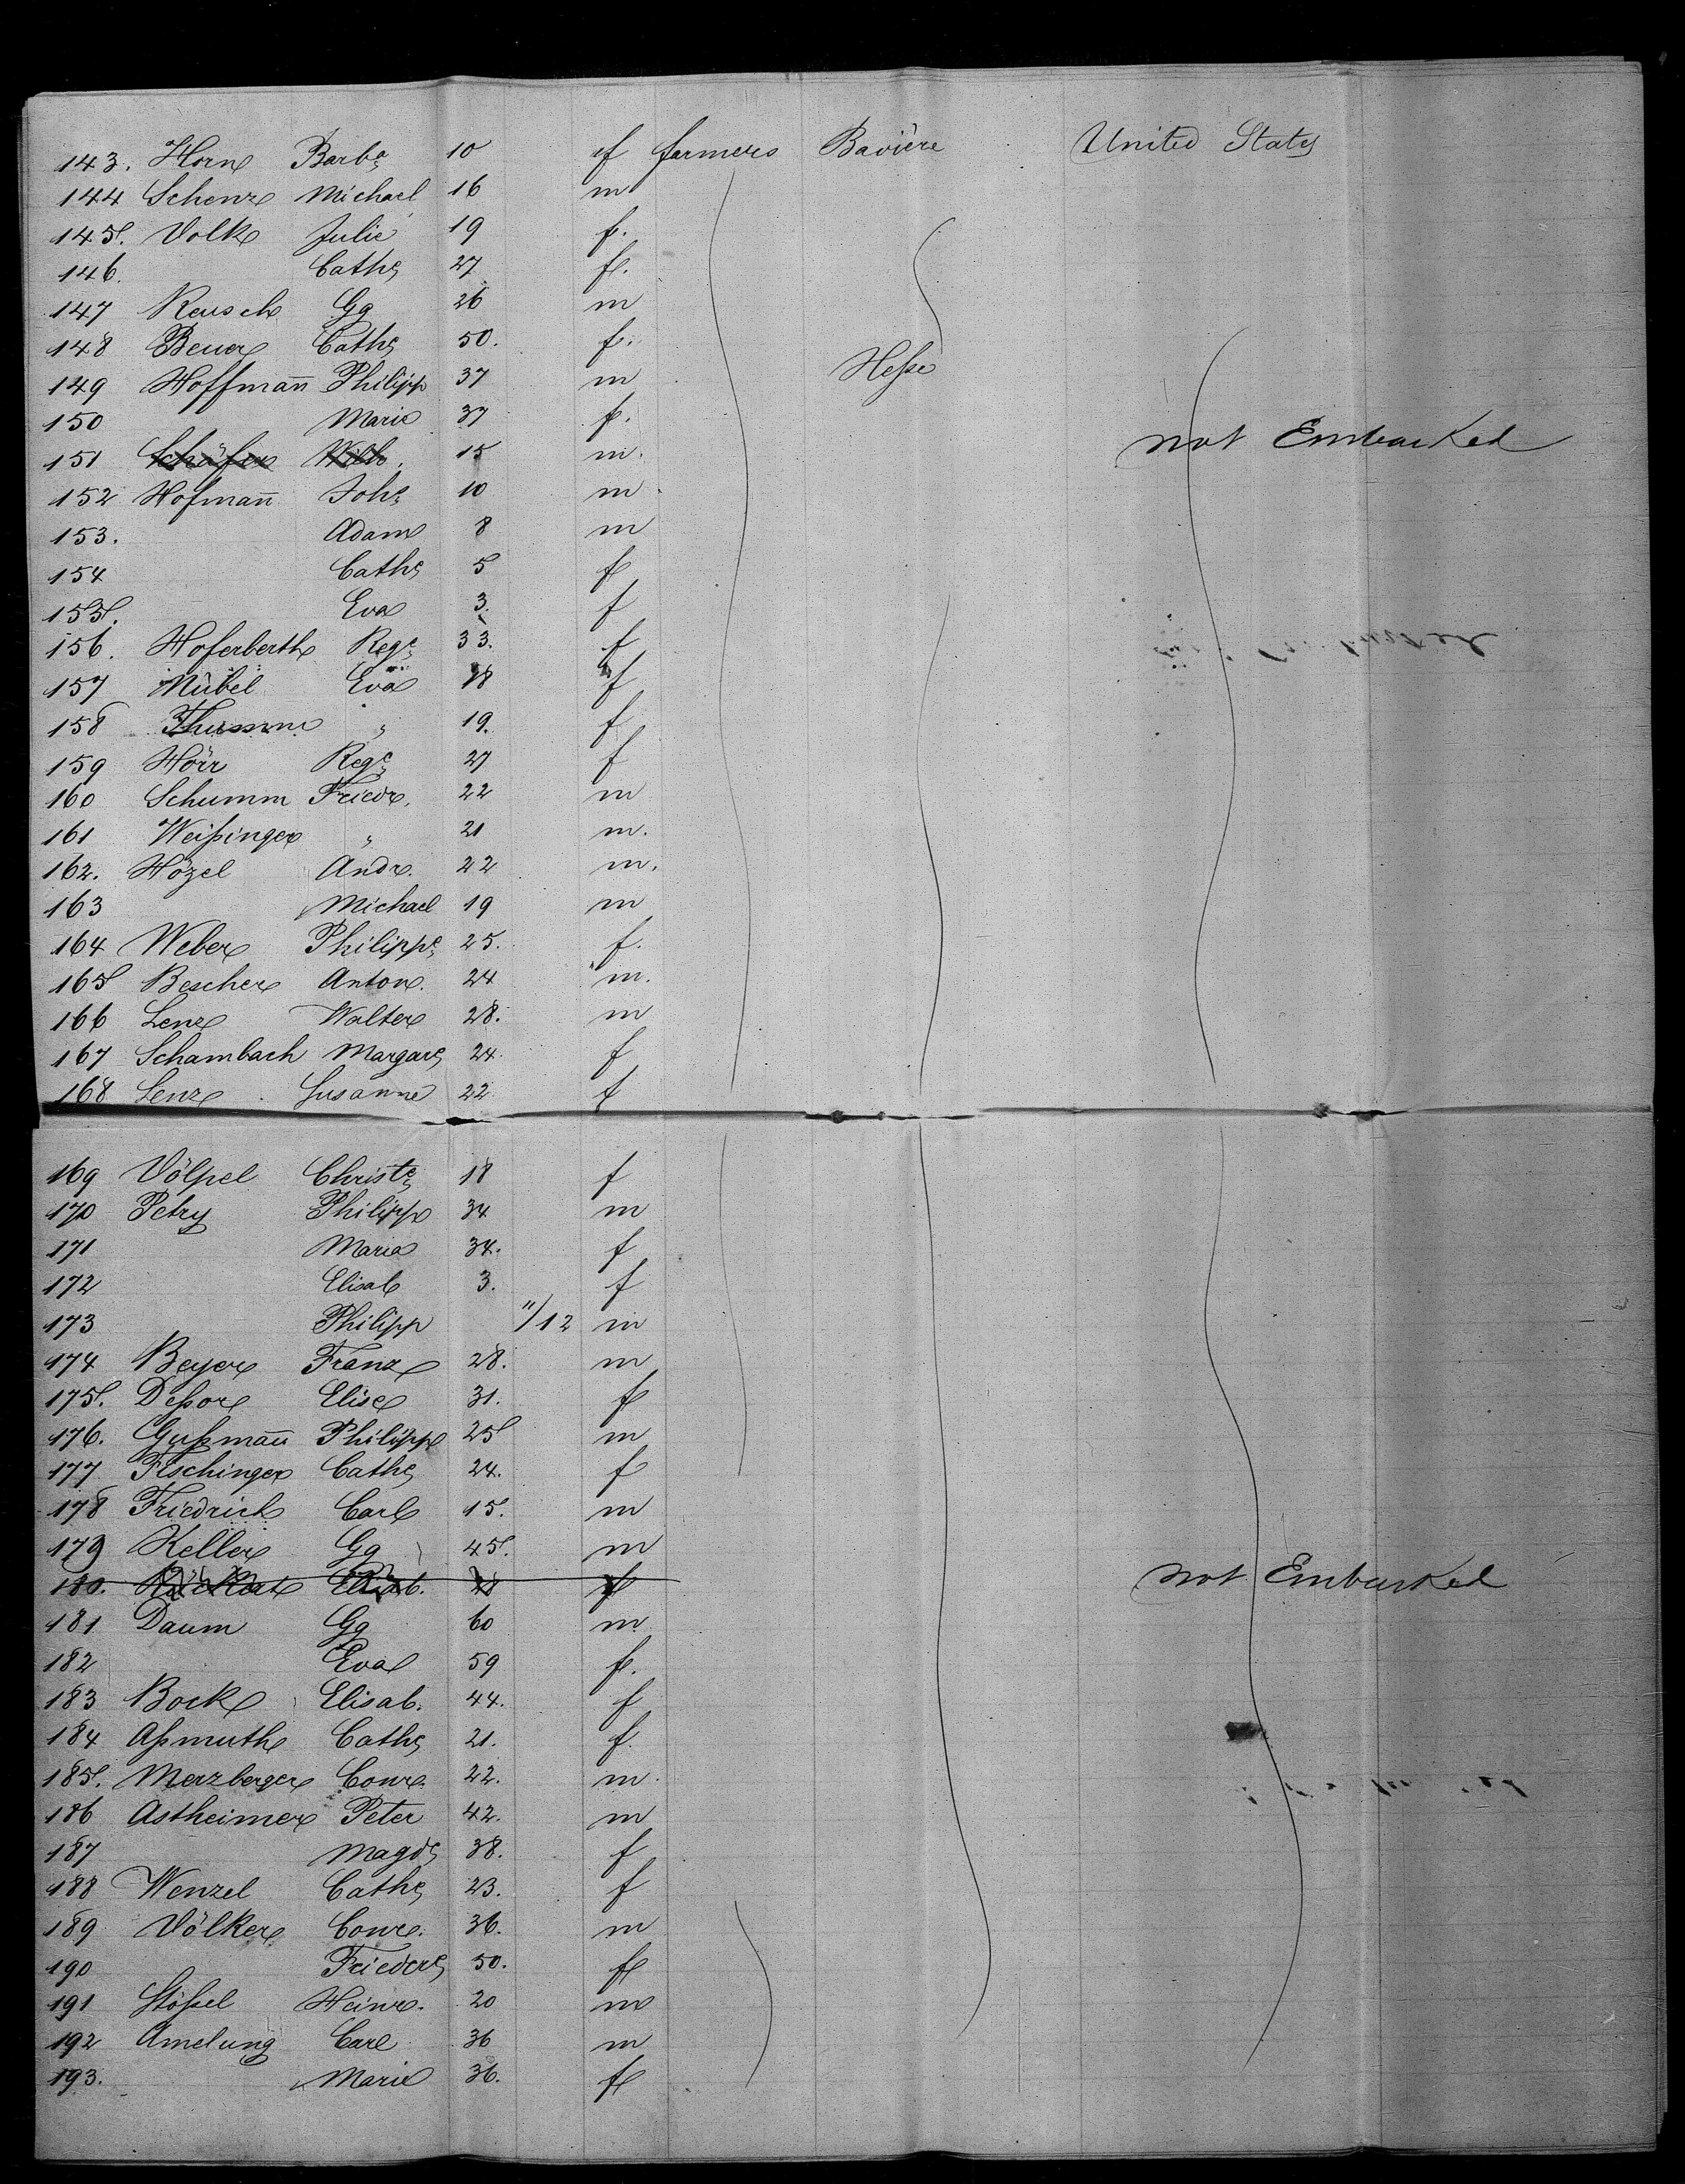 143. Horn Barbᵃ 10 f farmers Bavière United States
144 Schenz Michael 16 m
145. Volk Julie 19 f.
146. Cathᵉ 27 f.
147 Reusch Gg 26 m
148 Beuer Cathᵉ 50. f.
149 Hoffmañ Philipp 37 m Heßse
150 Marie 37 f.
151 Schäfer Wilh. 15 m. not Embarked
152 Hofmañ Johˢ 10 m
153. Adam 8 m
154 Cathᵉ 5 f
155. Eva 3. f
156. Hoferberth Regᵉ 33. f
157 Mübel Eva 18 f
158 Thumm " 19. f
159 Hörr Regᵉ 27 f
160 Schumm Friedr. 22 m
161 Weißinger " 21 m.
162. Hözel Andr. 22 m.
163 Michael 19 m
164 Weber Philippᵉ 25. f.
165 Bescher Anton. 24 m.
166 Lenz Walter 28. m
167 Schambach Margarᵉ 24. f
168 Lenz Susanne 22 f
169 Völpel Christᵉ 18 f
170 Petry Philipp 34 m
171 Maria 34. f
172 Elisab 3. f
173 Philipp 11/12 m
174 Beyer Franz 28. m
175. Deßor Elise 31. f
176. Gußmañ Philipp 25 m
177 Fischinger Cathᵉ 24. f
178 Friedrich Carl 15. m
179 Keller Gg 45. m
180. Elisab. f not Embarked
181 Daum Gg 60 m
182 Eva 59 f.
183 Bock Elisab. 44. f
184 Aßmuth Cathᵉ 21. f.
185. Merzberger Conr. 22. m.
186 Astheimer Peter 42. m
187 Magdᵉ 38. f
188 Wenzel Cathᵉ 23. f
189 Völker Conr. 36. m
190 Friederᵉ 50. f
191 Stößel Heinr. 20 m
192 Amelung Carl 36 m
193. Marie 36. f